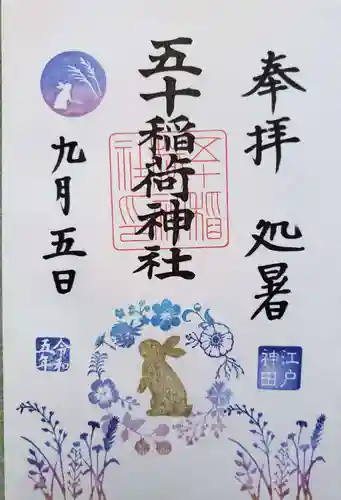 奉拝 処暑
五十稲荷神社
九月五日
江戸
神田
令和
五年